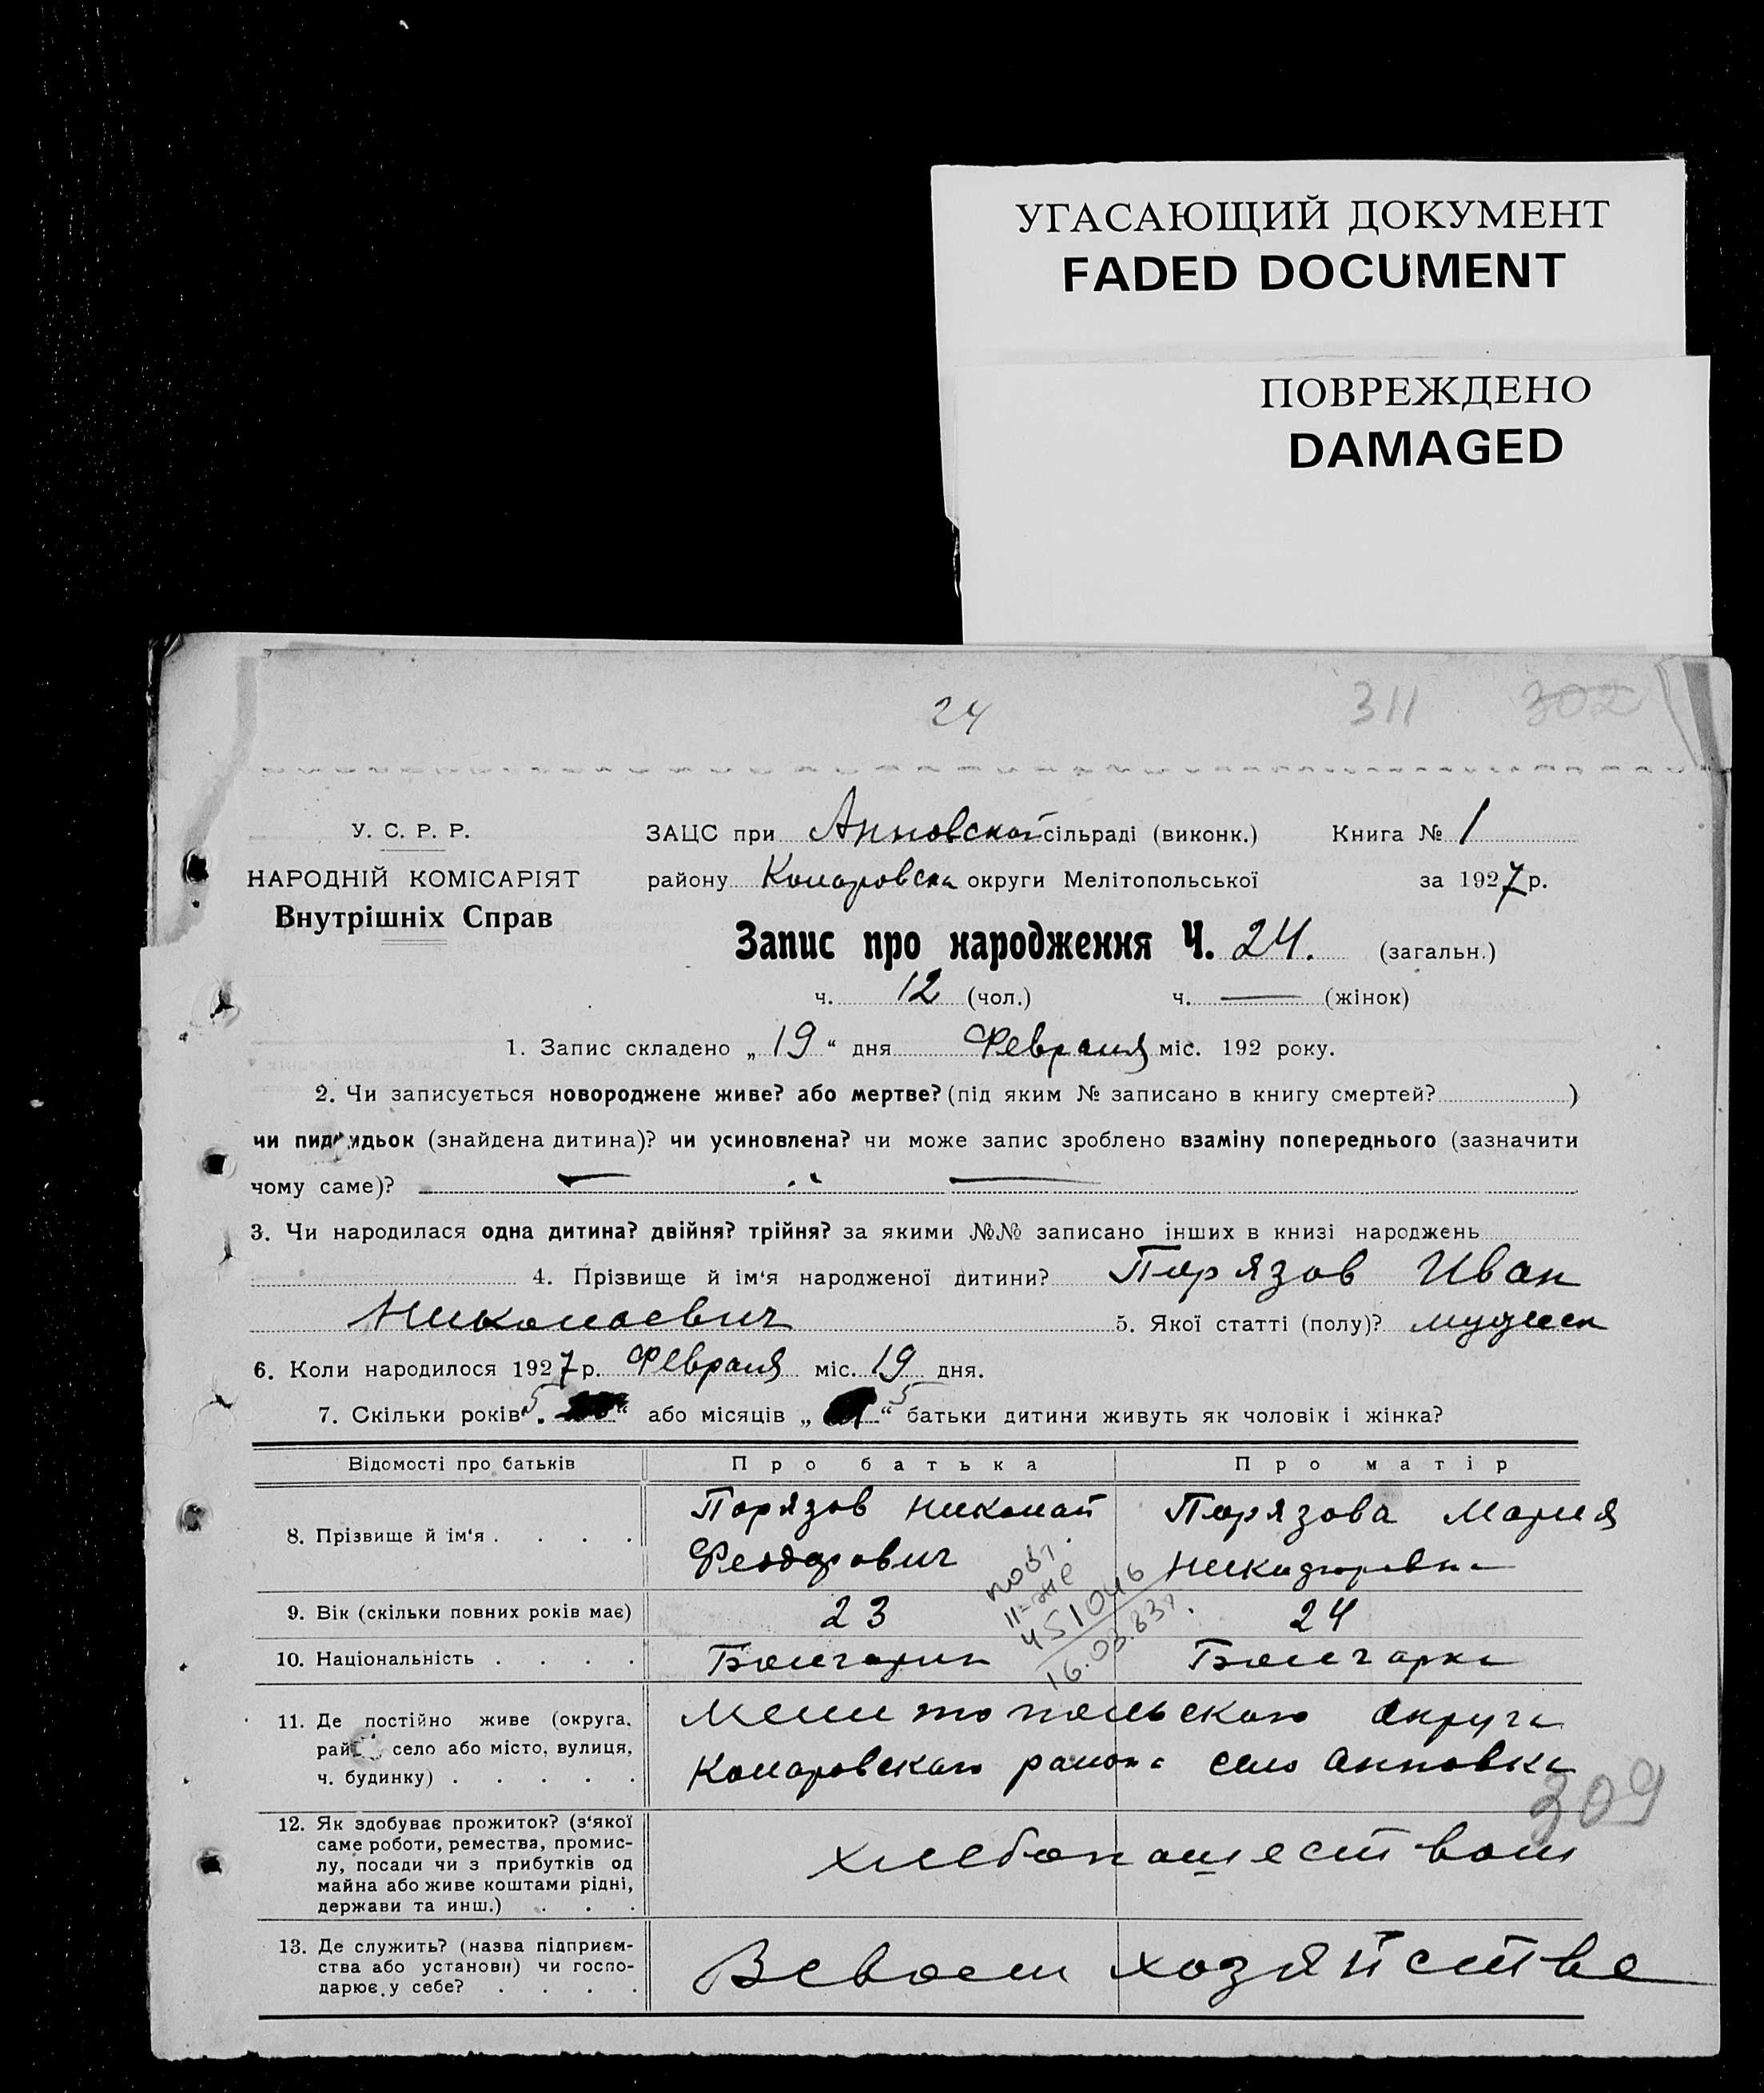 УГАСАЮЩИЙ ДОКУМЕНТ
FADED DOCUMENT
ПОВРЕЖДЕНО
DAMAGED
24 311 302
У. С. Р. Р.
НАРОДНІЙ КОМІСАРІЯТ
Внутрішніх Справ
ЗАЦС при Анновской сільраді (виконк.) Книга № 1
району Комаровска округи Мелітопольської за 1927 р.
Запис про народження Ч. 24. (загальн.)
ч. 12 (чол.) ч. — (жінок)
1. Запис складено „19“ дня Февраля міс. 192 року.
2. Чи записується новороджене живе? або мертве? (під яким № записано в книгу смертей? )
чи пид идьок (знайдена дитина)? чи усиновлена? чи може запис зроблено взаміну попереднього (зазначити
чому саме)? — " —
3. Чи народилася одна дитина? двійня? трійня? за якими №№ записано інших в книзі народжень
4. Прізвище й ім‘я народженої дитини? Порязов Иван
Николаевич 5. Якої статті (полу)? мужск
6. Коли народилося 1927 р. Февраля міс. 19 дня.
7. Скільки років „5“ або місяців „ “ 5 батьки дитини живуть як чоловік і жінка?
Відомості про батьків Про батька Про матір
8. Прізвище й ім‘я . . . . Порязов Николай Порязова Мария
Феодорович
9. Вік (скільки повних років має) 23 24
повт.
451046
16.03.83г.
10. Національність . . . . Болгарин Болгарка
11. Де постійно живе (округа,
рай , село або місто, вулиця,
ч. будинку) . . . . .
Мелитопольского округа
Комаровского района село Анновка
309
12. Як здобуває прожиток? (з‘якої
саме роботи, ремества, промис-
лу, посади чи з прибутків од
майна або живе коштами рідні,
держави та инш.) . . .
хлебопашеством
13. Де служить? (назва підприєм-
ства або установи) чи госпо-
дарює у себе? . . . .
В своем хозяйстве